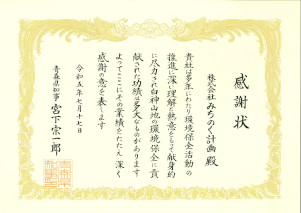 感謝状
株式会社みちのく計画 殿
貴社は多年にわたり環境保全活動の
推進に深い理解と熱意をもって献身的
に尽力され白神山地の環境保全に貢
献された功績は多大なものがあります
よってここにその業績をたたえ深く
感謝の意を表します
令和五年七月十七日
青森県知事 宮下宗一郎